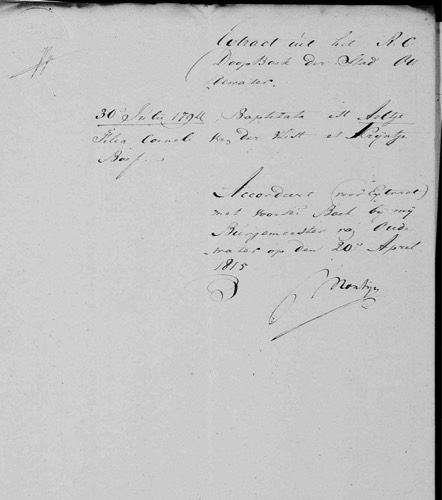 Extract uit het R.C
Doop Boek der Stad Ou
dewater.
30 Julii 1794 Baptizata est Aeltje
Filia Corneli van der Vest et Krijntje
Boef.
Accordeert (voor Extract)
met voorsz Boek bij mij
Burgemeester van Oude
water op den 20e April
1815
Montijn